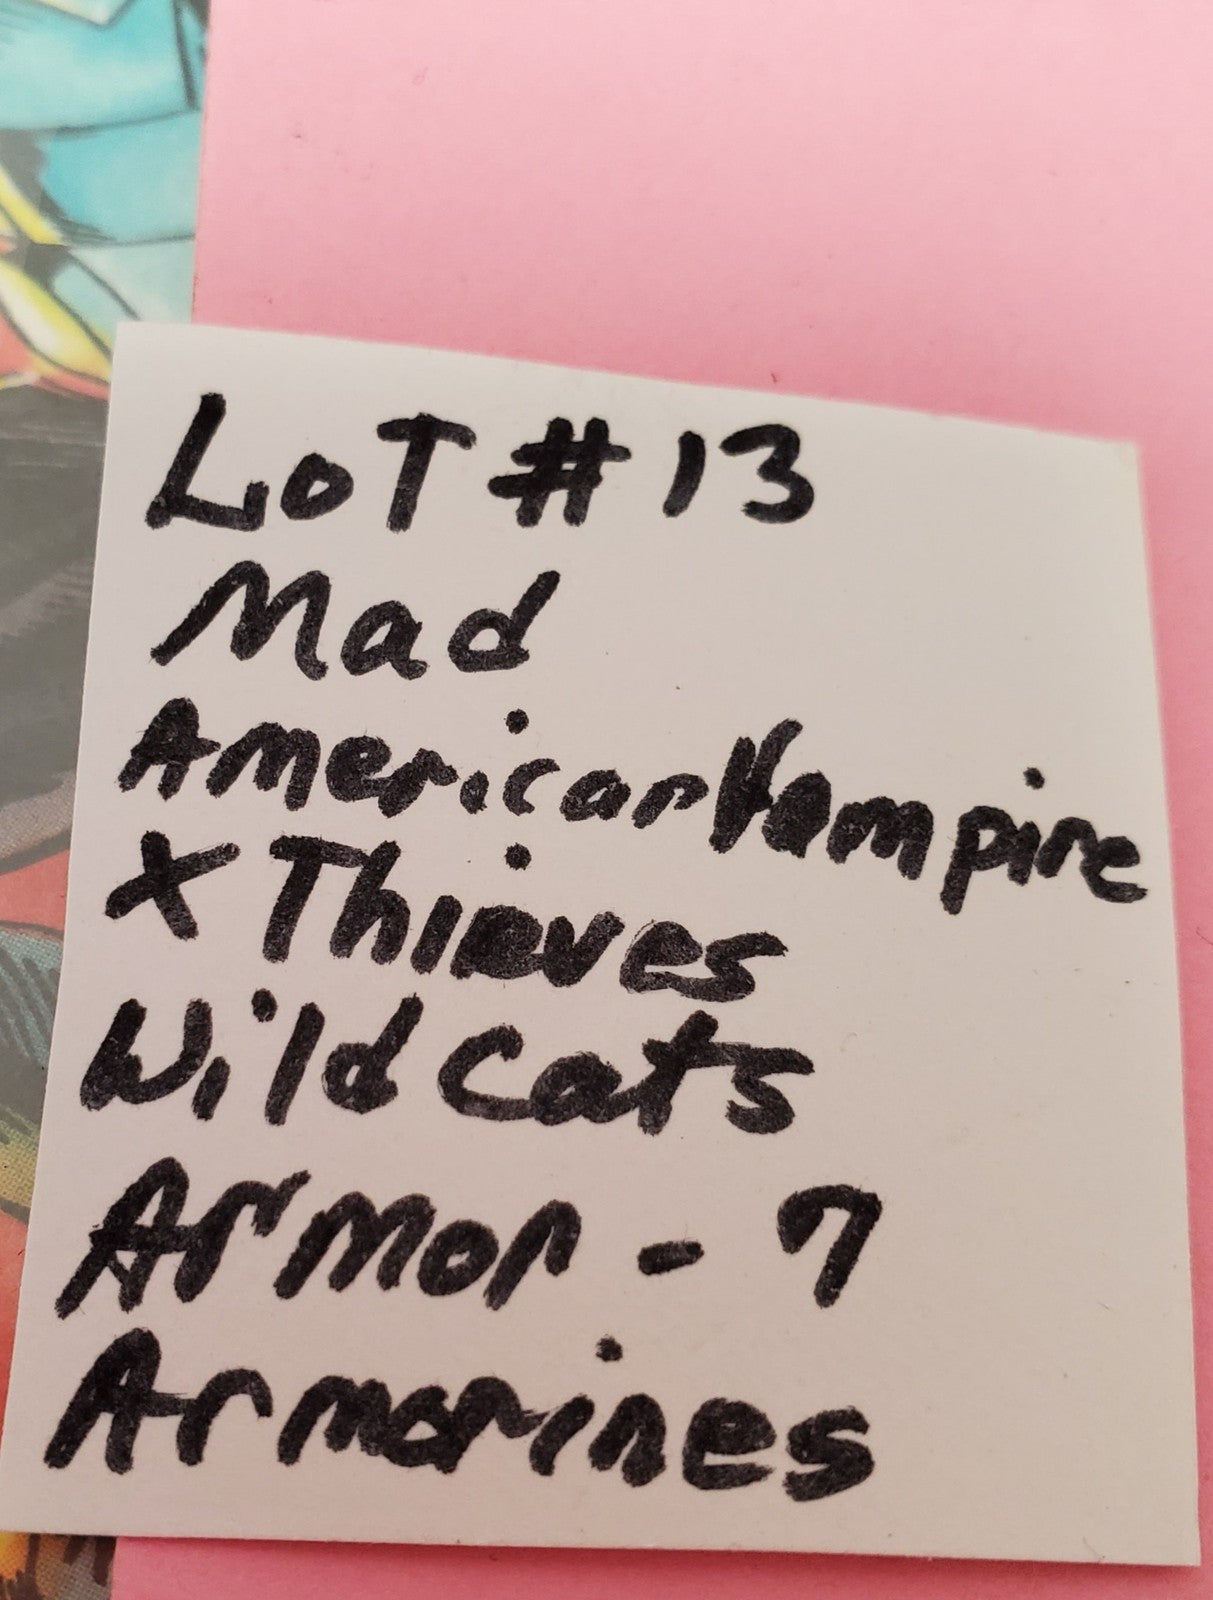 LoT # 13
Mad
American Vampire
X Thieves
Wild Cats
Armor - 7
Armorines